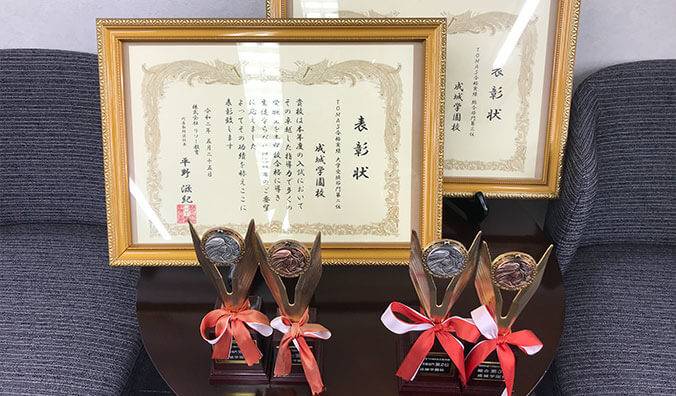 表彰状
TOMAS合格実績 大学受験部門第二位
成城学園校
貴校は本年度の入試において
その卓越した指導力で多くの
受験生を
合格に導き
生徒
ご要望
に応えました
よってその功績を称えここに
表彰致します
令和二年五月二十五日
株式会社リソー教育
平野 滋紀
表彰状
TOMAS合格実績 総合部門第三位
成城学園校
第2位
成城学園校
総合 第3
成城学園